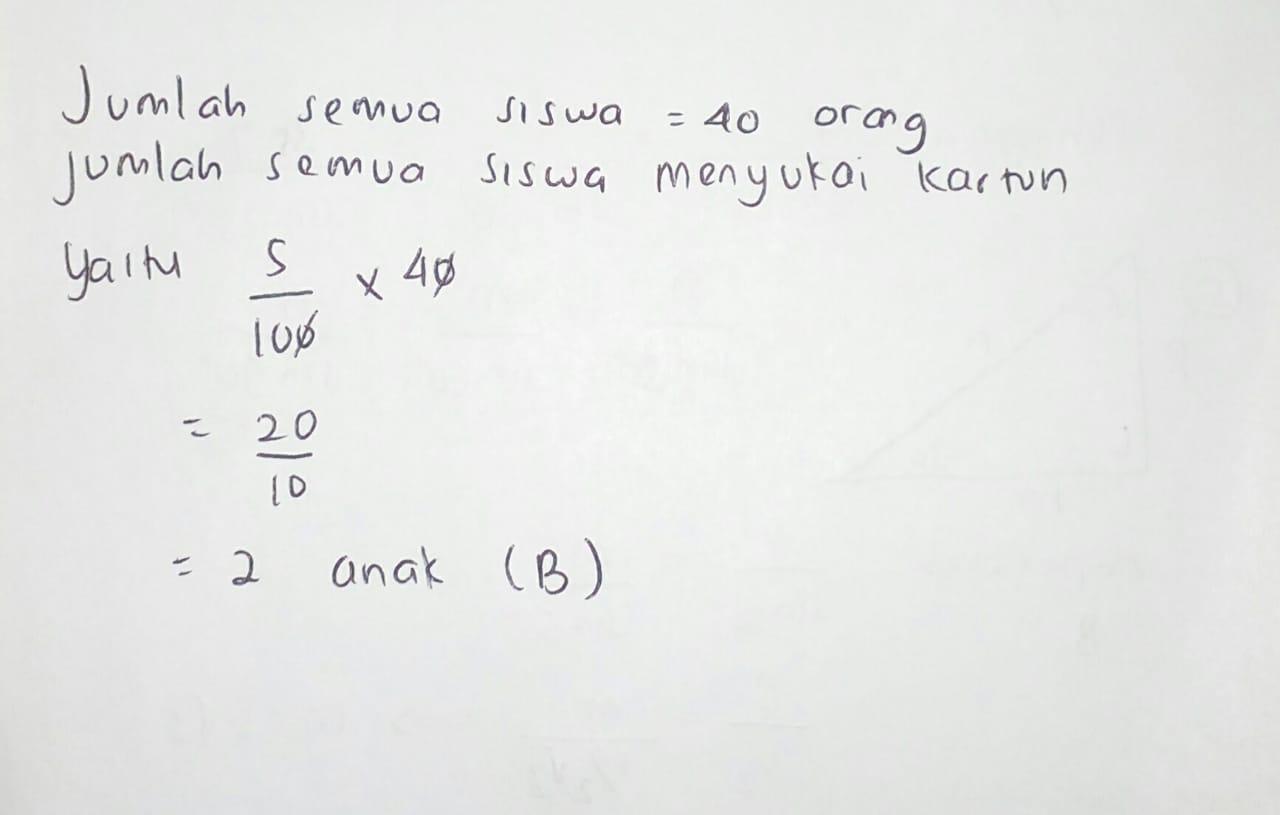 Jumlah semua siswa = 40 orang
jumlah semua siswa menyukai kartun
yaitu 5/100 x 40
= 20/10
= 2 anak (B)